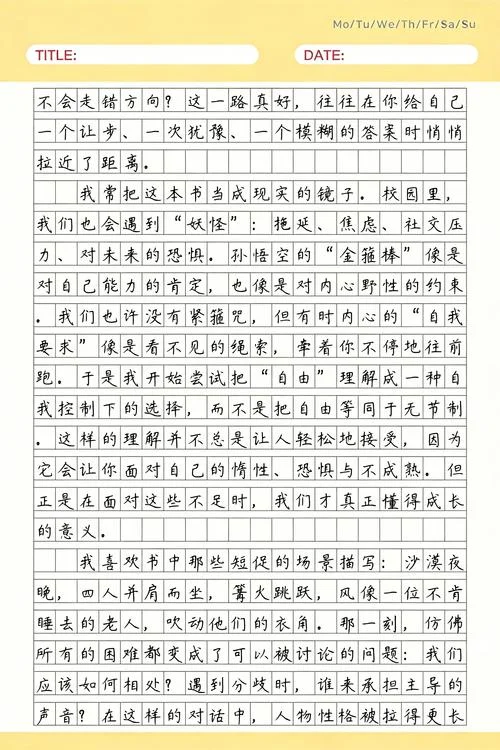 Mo/Tu/We/Th/Fr/Sa/Su
TITLE: DATE:
不会走错方向？这一路真好，往往在你给自己
一个让步、一次犹豫、一个模糊的答案时悄悄
拉近了距离。
我常把这本书当成现实的镜子。校园里，
我们也会遇到“妖怪”：拖延、焦虑、社交压
力、对未来的恐惧。孙悟空的“金箍棒”像是
对自己能力的肯定，也像是对内心野性的约束
。我们也许没有紧箍咒，但有时内心的“自我
要求”像是看不见的绳索，牵着你不停地往前
跑。于是我开始尝试把“自由”理解成一种自
我控制下的选择，而不是把自由等同于无节制
。这样的理解并不总是让人轻松地接受，因为
它会让你面对自己的惰性、恐惧与不成熟。但
正是在面对这些不足时，我们才真正懂得成长
的意义。
我喜欢书中那些短促的场景描写：沙漠夜
晚，四人并肩而坐，篝火跳跃，风像一位不肯
睡去的老人，吹动他们的衣角。那一刻，仿佛
所有的困难都变成了可以被讨论的问题：我们
应该如何相处？遇到分歧时，谁来承担主导的
声音？在这样的对话中，人物性格被拉得更长